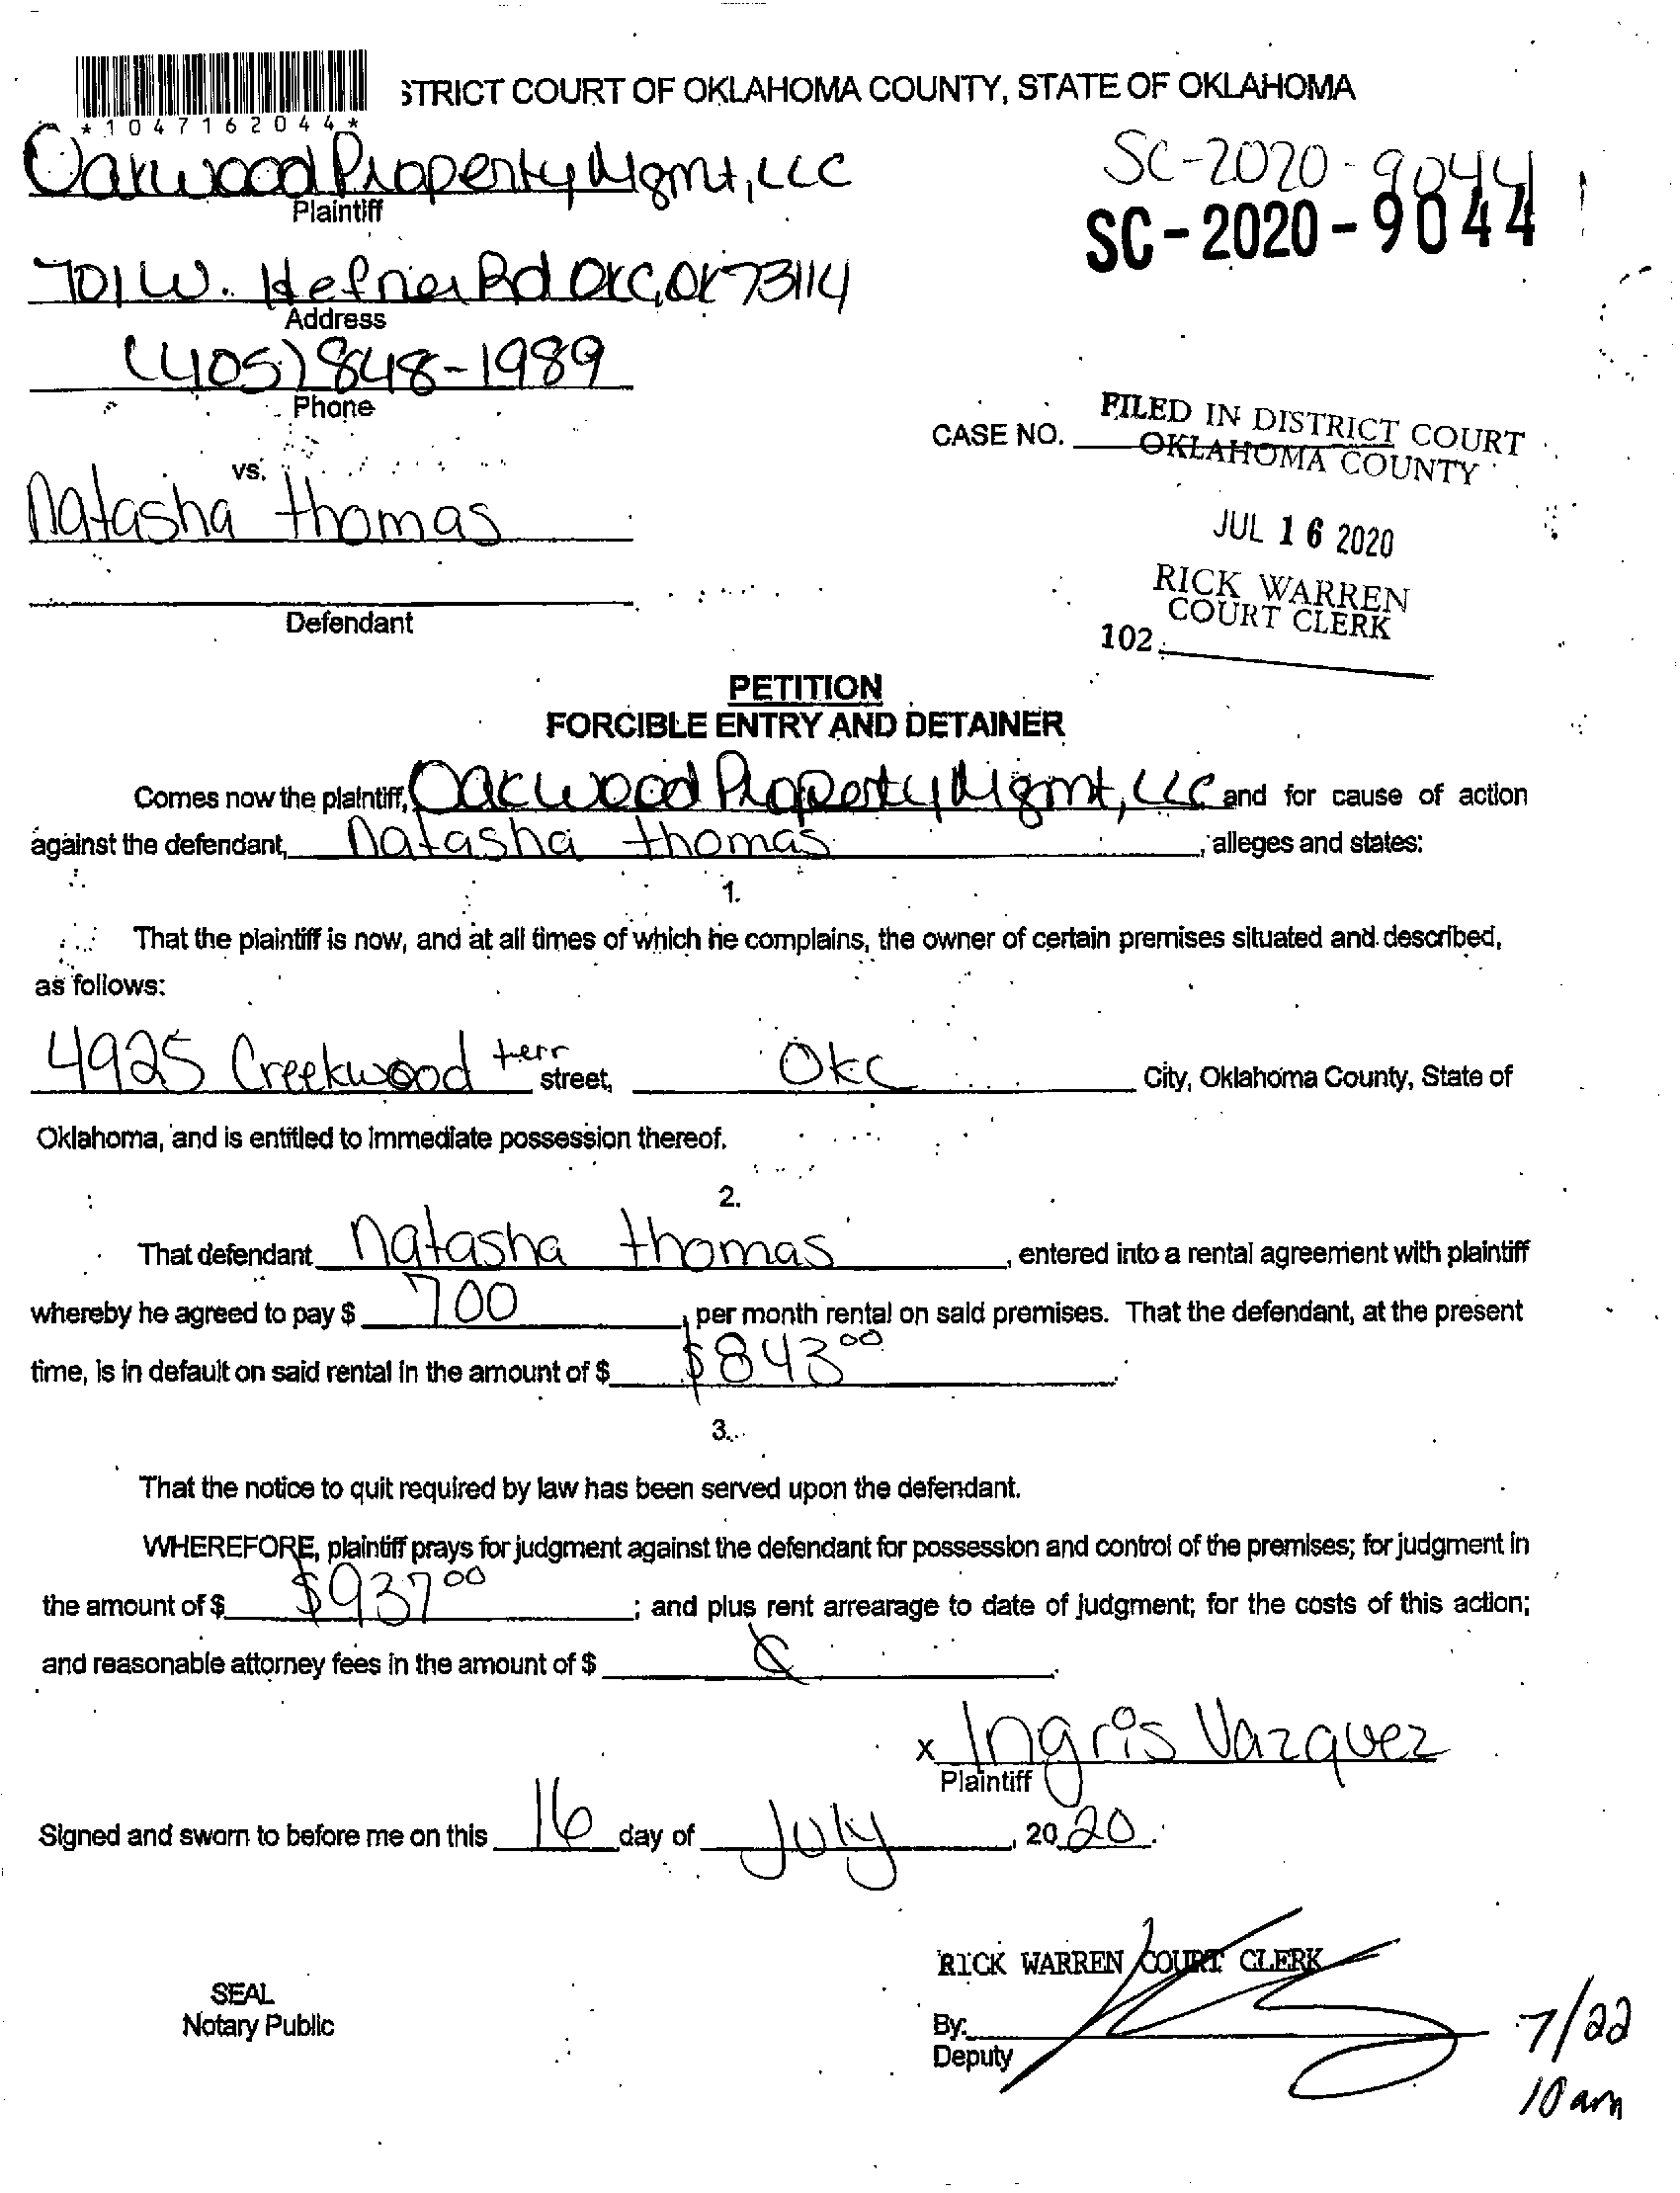 STRICT COURT OF OKLAHOMA COUNTY, STATE OF OKLAHOMA
*1047162044*
Oakwood Property Mgmt, LLC
Plaintiff
SC-2020-9044
SC-2020-9044
701 W. Hefner Rd OKC, OK 73114
Address
(405) 848-1989
Phone
CASE NO.
FILED IN DISTRICT COURT
OKLAHOMA COUNTY
vs.
Natasha Thomas
JUL 16 2020
RICK WARREN
COURT CLERK
Defendant
102
PETITION
FORCIBLE ENTRY AND DETAINER
Comes now the plaintiff, Oakwood Property Mgmt, LLC and for cause of action
against the defendant, Natasha Thomas, alleges and states:
1.
That the plaintiff is now, and at all times of which he complains, the owner of certain premises situated and described,
as follows:
4925 Creekwood terr street, OKC City, Oklahoma County, State of
Oklahoma, and is entitled to immediate possession thereof.
2.
That defendant Natasha Thomas, entered into a rental agreement with plaintiff
whereby he agreed to pay $ 700, per month rental on said premises. That the defendant, at the present
time, is in default on said rental in the amount of $ $843.00.
3.
That the notice to quit required by law has been served upon the defendant.
WHEREFORE, plaintiff prays for judgment against the defendant for possession and control of the premises; for judgment in
the amount of $ $937.00; and plus rent arrearage to date of judgment; for the costs of this action;
and reasonable attorney fees in the amount of $
x Ingris Vazquez
Plaintiff
Signed and sworn to before me on this 16 day of July, 2020.
RICK WARREN COURT CLERK
SEAL
Notary Public
By:
Deputy
7/22
10 am